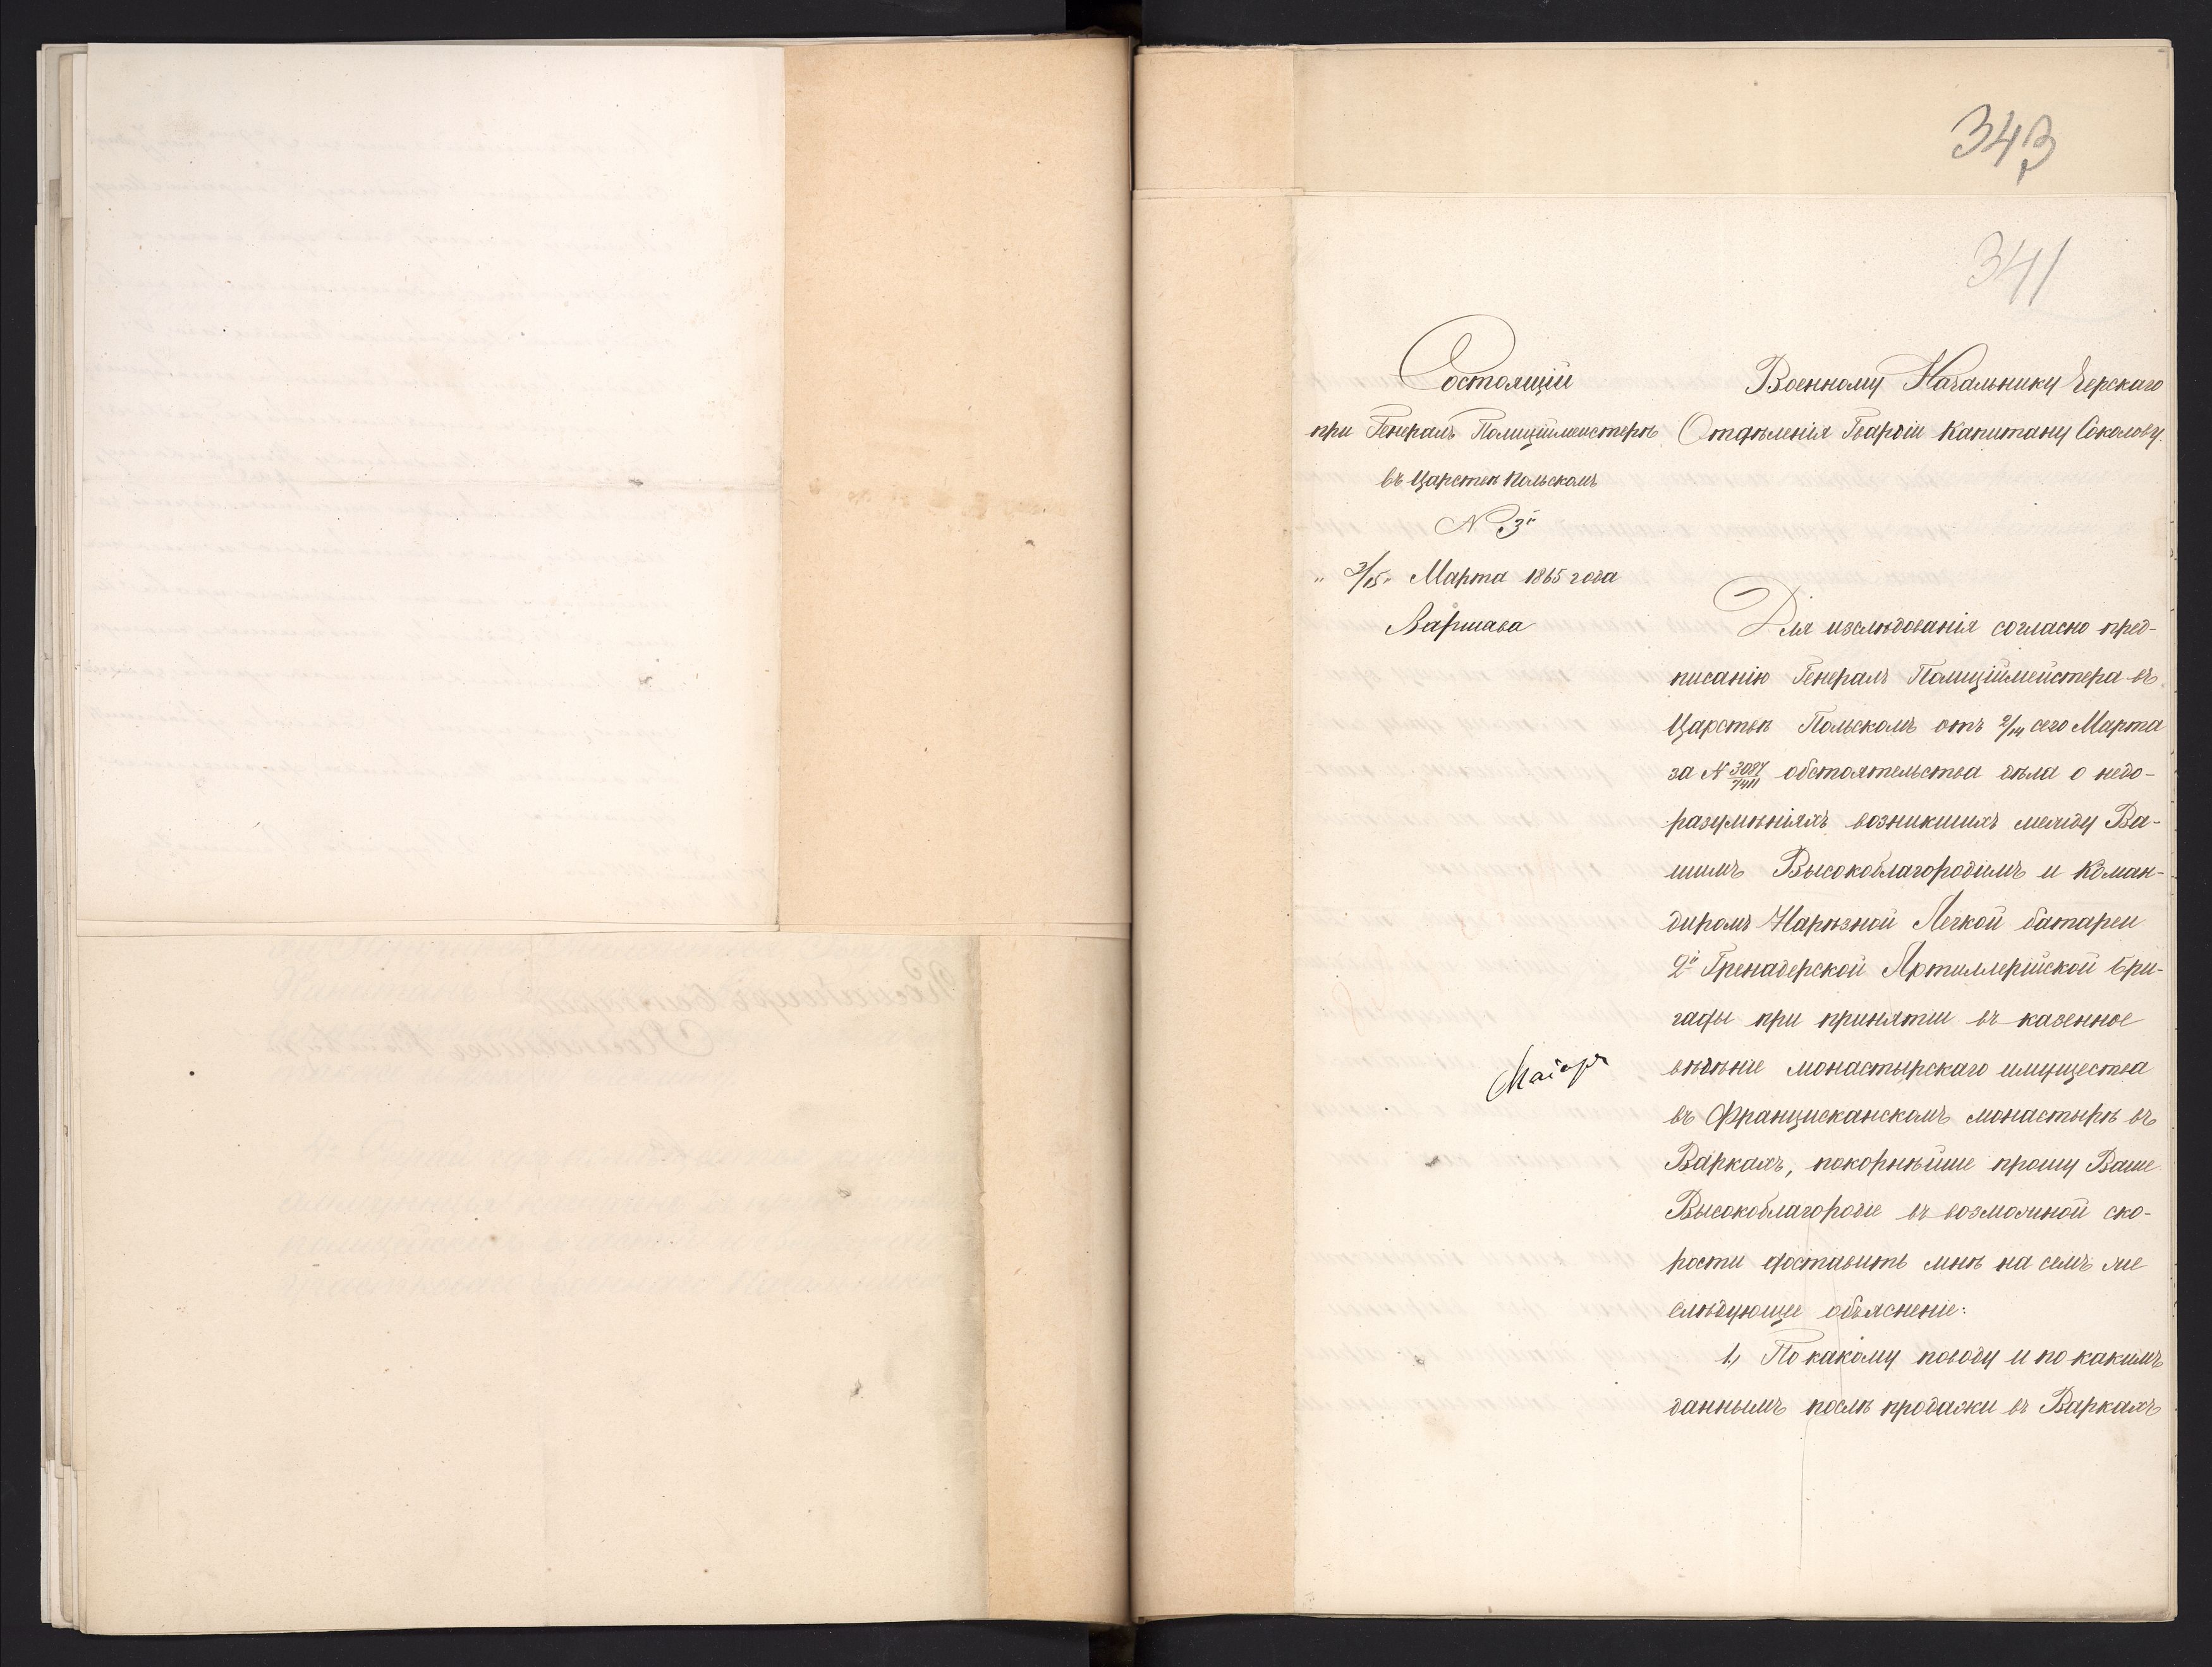 343
341
Состоящій
при Генералъ Полиціймейстерѣ
въ Царствѣ Польскомъ
N 3й
„ 3/15 „ Марта 1865 года
Варшава
Маіоръ
Военному Начальнику Черскаго
Отдѣленія Гвардіи Капитану Соколову.
Для изслѣдованія согласно пред-
писанію Генералъ Полиціймейстера въ
Царствѣ Польскомъ отъ 2/14 сего Марта
за N 3087/7411 обстоятельства дѣла о недо-
разумѣніяхъ возникшихъ между Ва-
шимъ Высокоблагородіемъ и Коман-
диромъ Нарѣзной Легкой батареи
2й Гренадерской Артиллерійской Бри-
гады при принятіи въ казенное
вѣдѣніе монастырскаго имущества
въ Францисканскомъ монастырѣ въ
Варкахъ, покорнѣйше прошу Ваше
Высокоблагородіе въ возможной ско-
рости доставить мнѣ на семъ же
слѣдующее объясненіе:
1, По какому поводу и по какимъ
даннымъ послѣ продажи въ Варкахъ